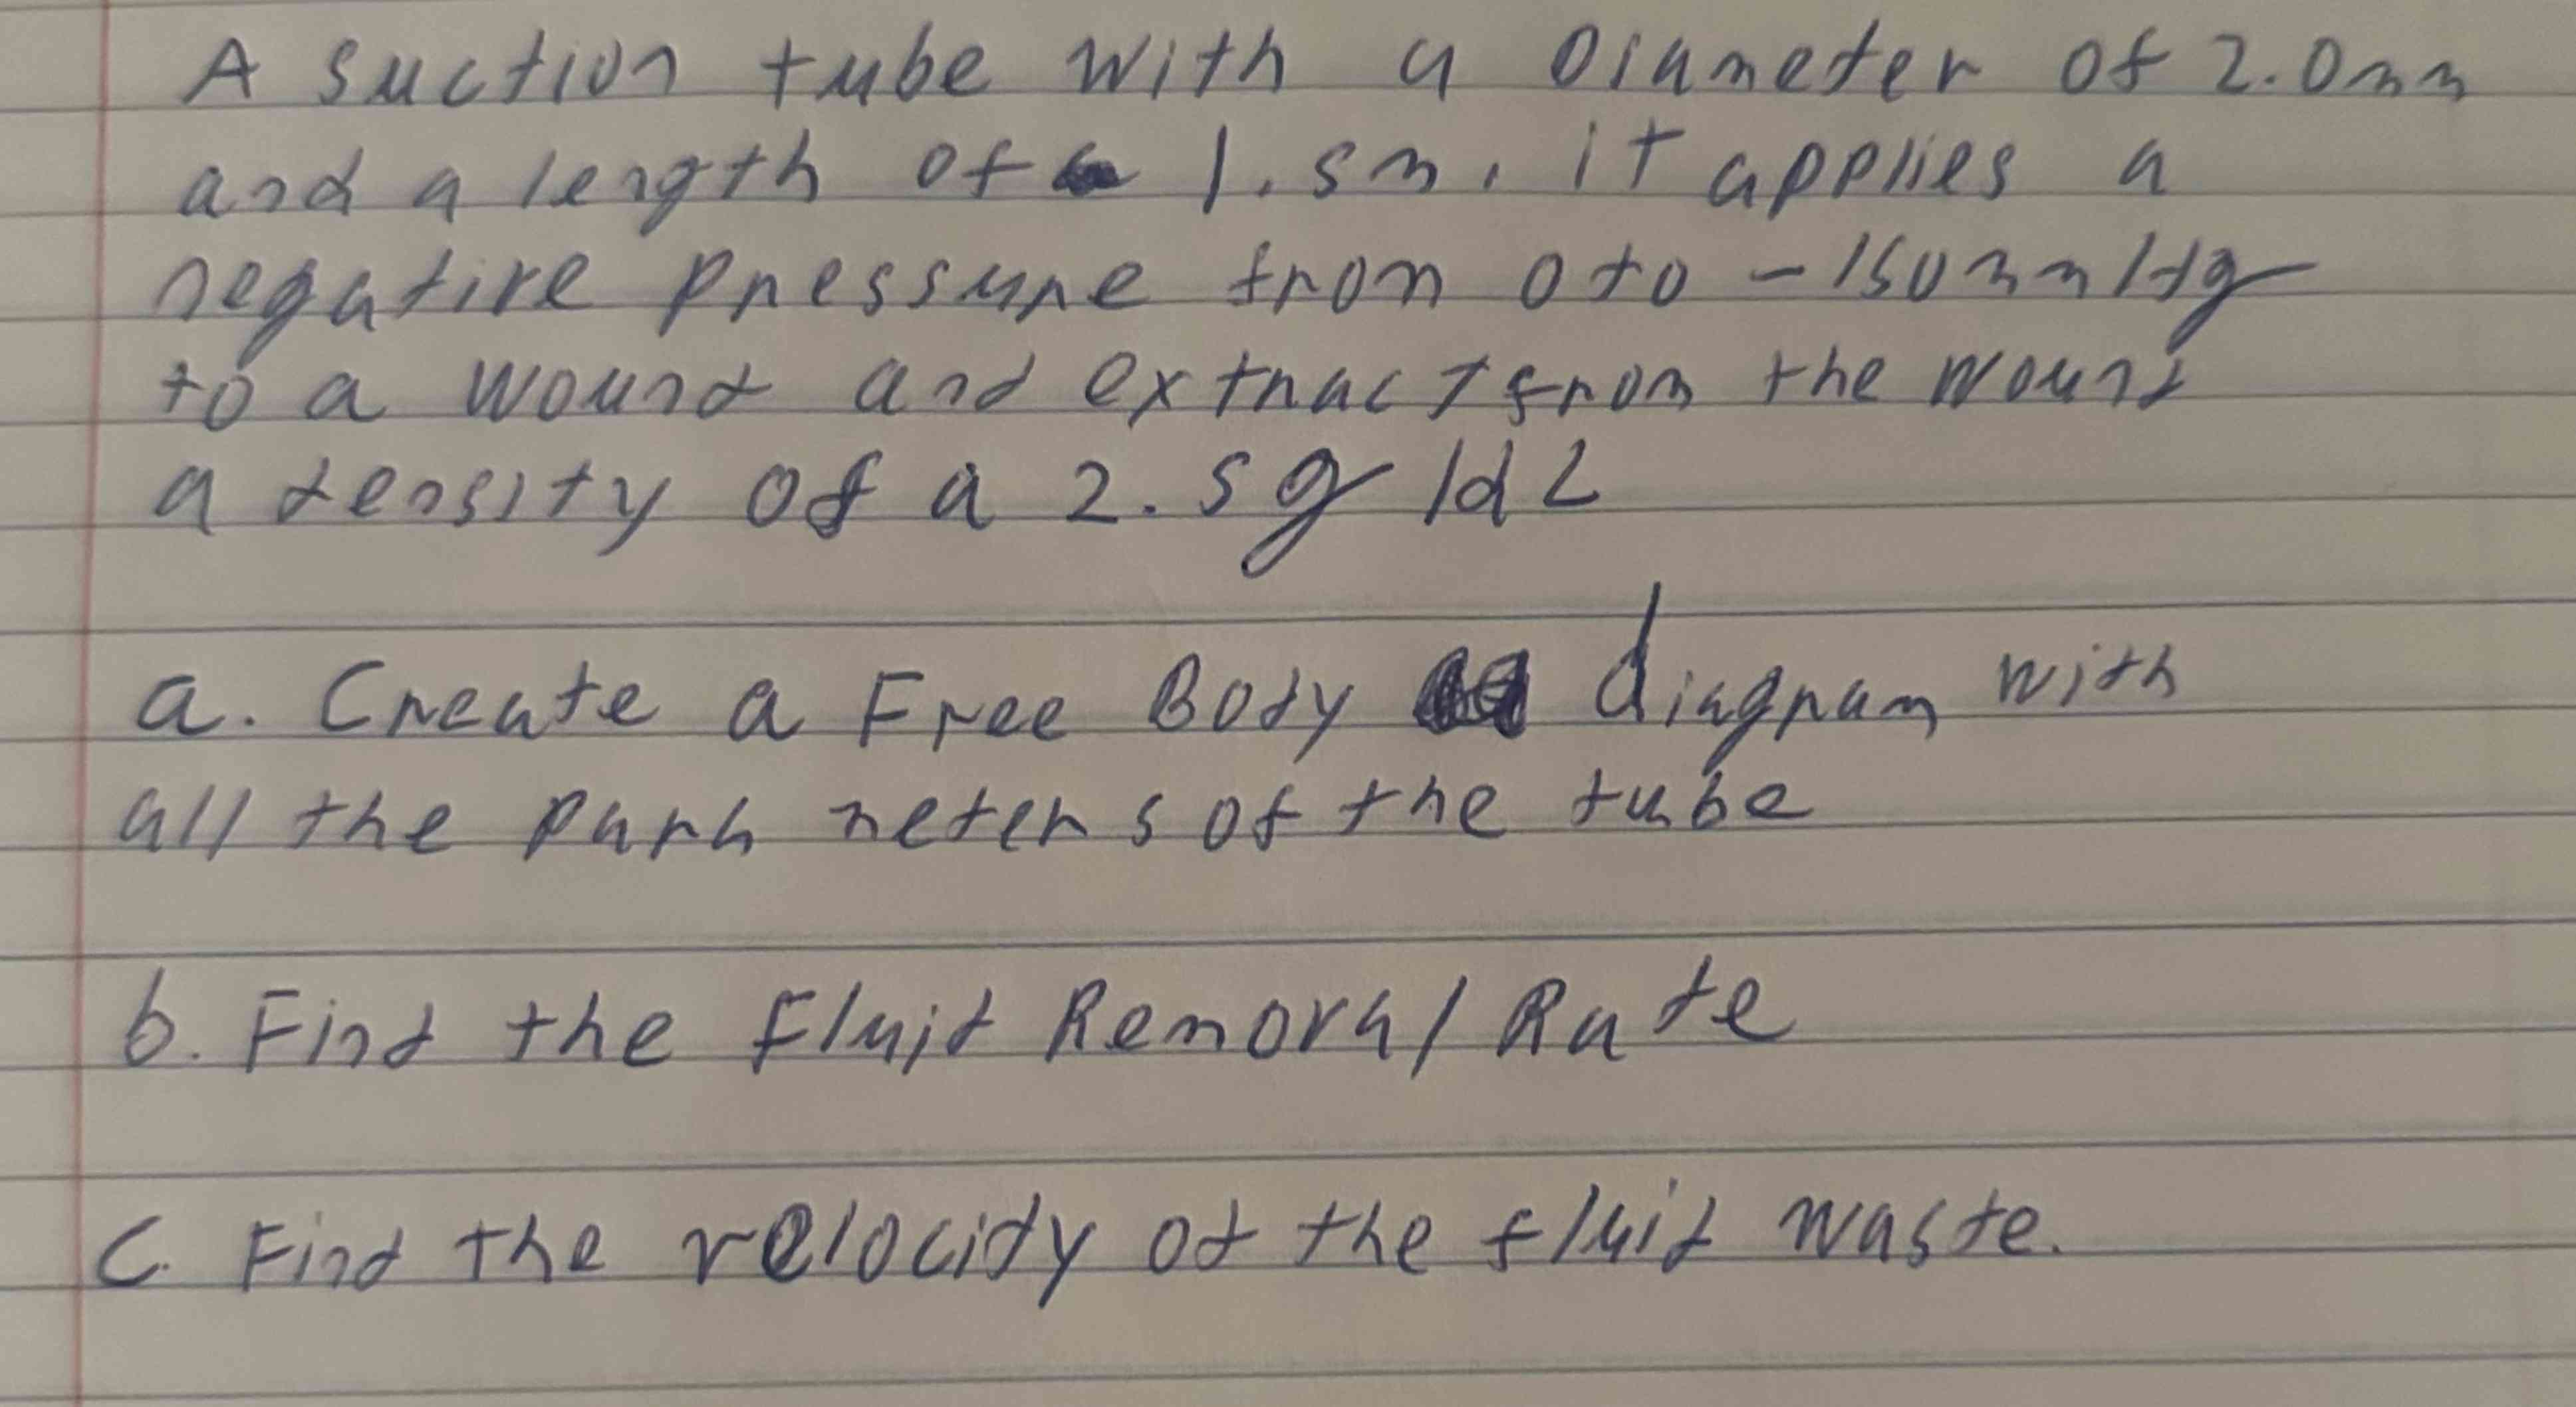 A suction tube with a Diameter of 2.0mm
and a length of 1.5m. it applies a
negative pressure from 0 to -150mmHg
to a wound and extract from the wound
a density of a 2.5g/dL
a. Create a Free Body diagram with
all the parameters of the tube
b. Find the Fluid Removal Rate
c. Find the velocity of the fluid waste.